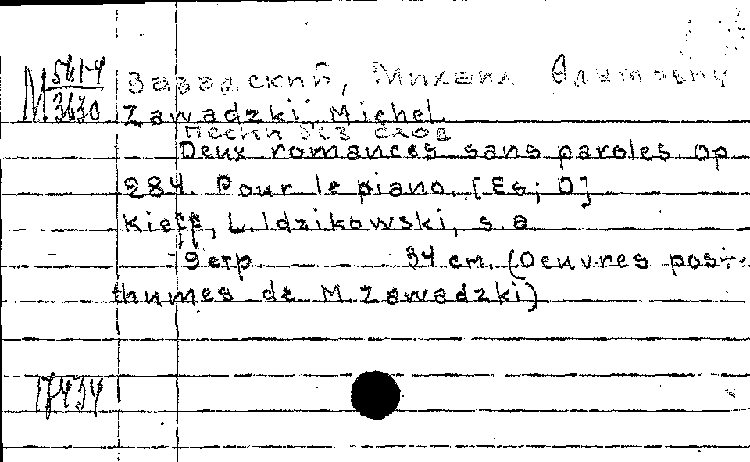 М 561-4
3630
Завадский, Михаил
Zawadzki, Michel.
Песни без слов
Deux romances sans paroles. Op
284. Pour le piano. [Es; D]
Kieff, L. Idzikowski, s. a.
9 стр. 34 cm. (Oeuvres post-
humes de M. Zawadzki)
17434